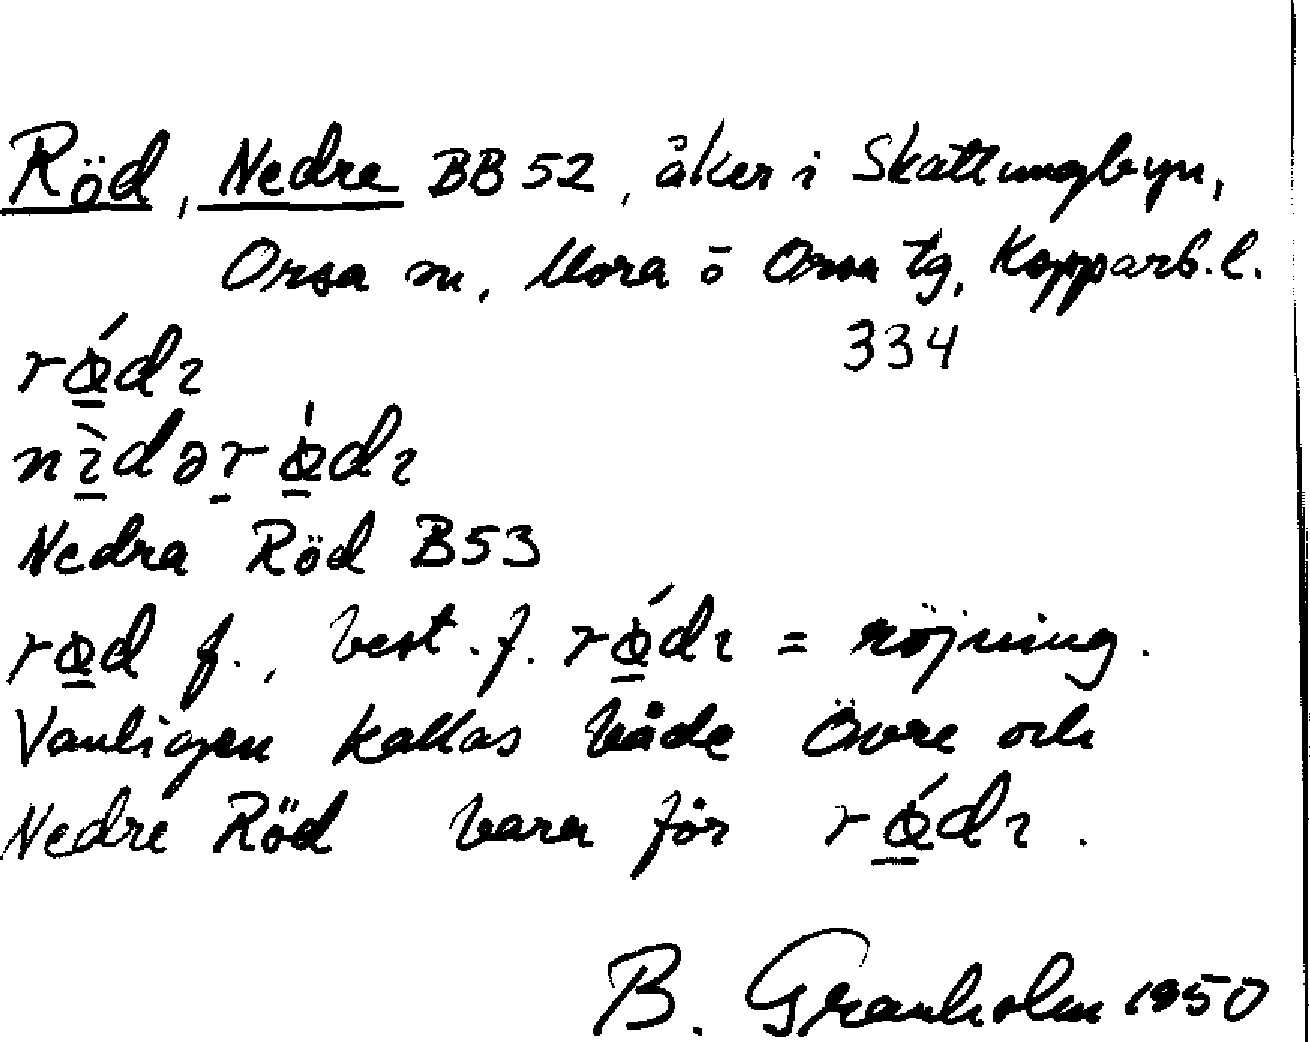 Röd, Nedre BB 52, åker i Skattungbyn,
Orsa sn, Mora o Orsa tg, Kopparb. l.
334
rǿ̱dɿ
nɿ̱̀dər̠ǿ̱dɿ
Nedra Röd B53
rø̱d f., best. f. rǿ̱dɿ = röjning.
Vanligen kallas både Övre och
Nedre Röd bara för rǿ̱dɿ.
B. Granholm 1950